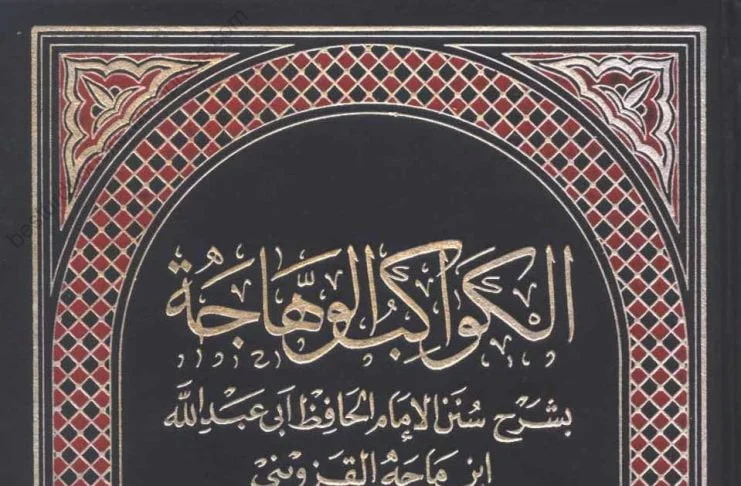 الكَوَاكِبُ الوَهَّاجَةُ
بشَرْح سُنَن الإمَام الحَافِظ أبي عَبْدِ اللَّه
ابن مَاجَهْ القَزْويْنيّ